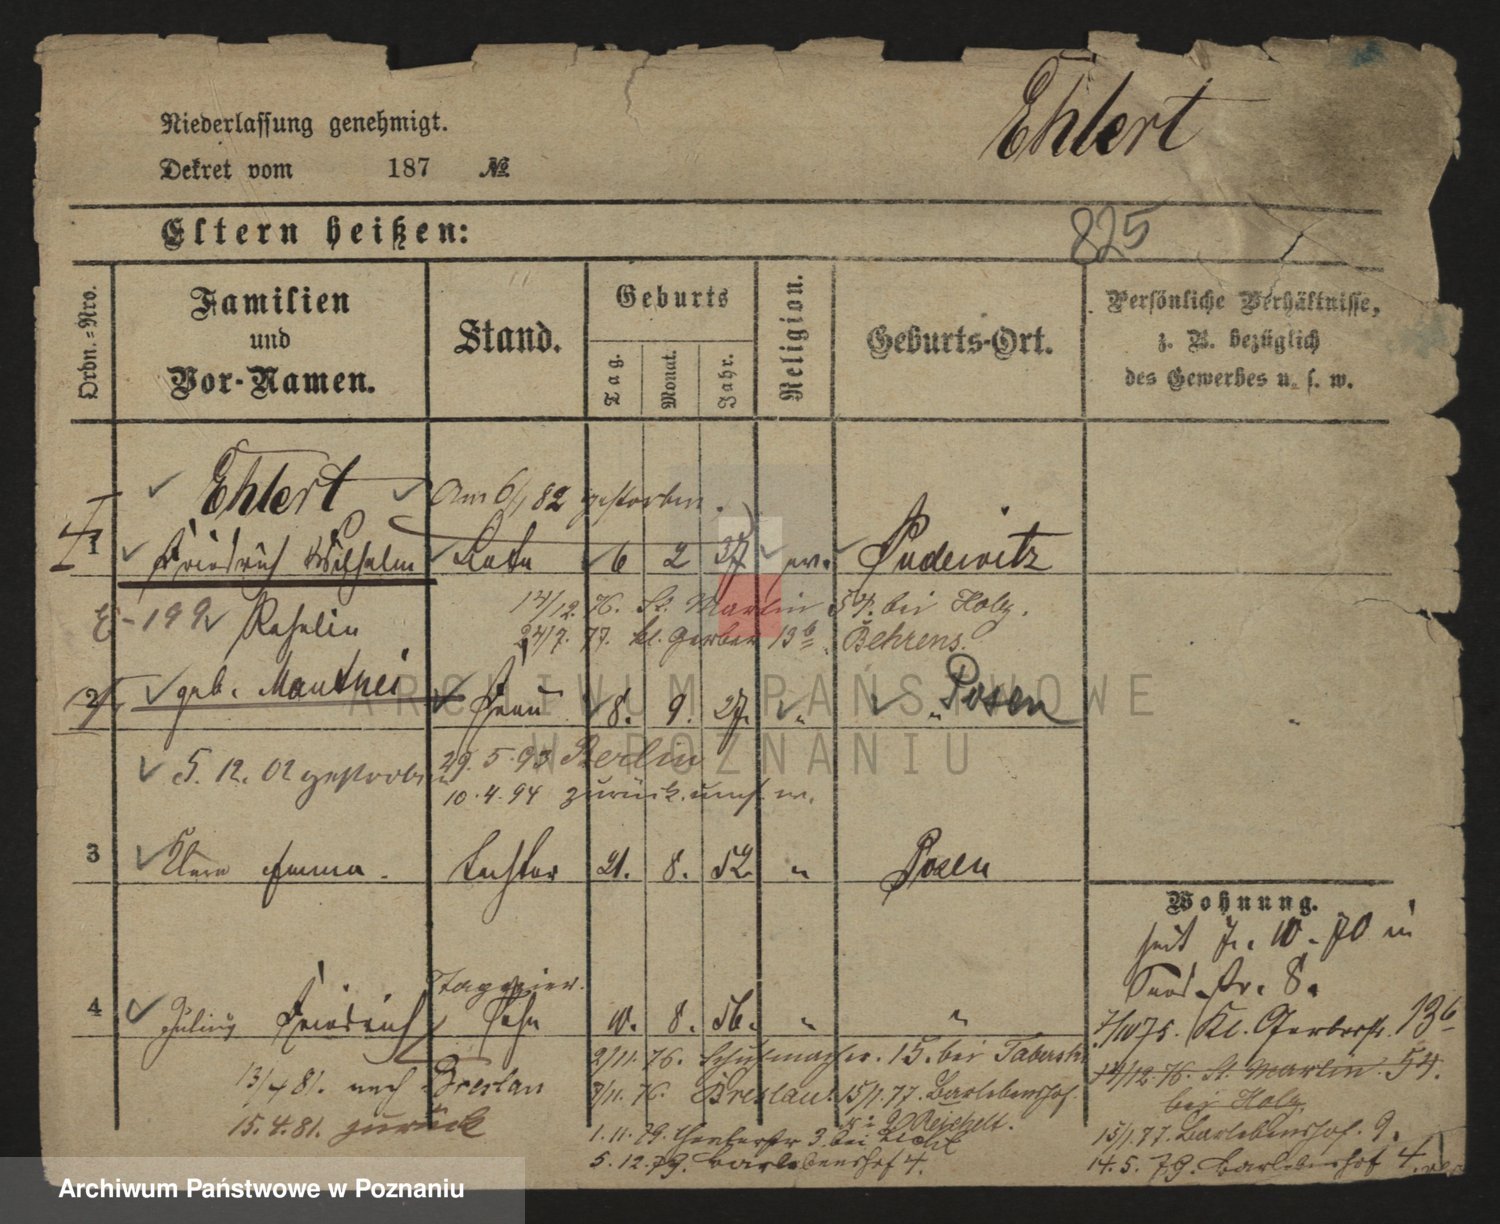 Niederlassung genehmigt.
Ehlert
Dekret vom 187 №
Eltern heißen:
825
Ordn.-Nro.
Familien
und
Vor-Namen.
Stand.
Geburts
Tag.
Monat.
Jahr.
Religion.
Geburts-Ort.
Persönliche Verhältnisse,
z. B. bezüglich
des Gewerbes u. s. w.
Ehlert
Am 6/1 82 gestorben.
1 Friedrich Wilhelm 6 2 37 ev. Pudewitz
14/12. 76. St. Martin 54. bei Holz.
24/7. 77. kl. Gerber 13b Behrens.
2 geb. Manthei Frau 8. 9. 27. " " Posen
5. 12. 02 gestorben
29. 5. 93 Berlin
10. 4. 94 zurück.
3 Emma. Tochter 21. 8. 52. " Posen
Wohnung.
seit 7. 10. 70 in
Str. 8.
4 Julius Friedrich Sohn 10. 8. 56. " "
7/10 75. Kl. Gerberstr. 13b
14/12. 76. St. Martin. 54.
bei Holz
15/1. 77. Barlebenshof. 9.
14. 5. 79. Barlebenshof 4.
2/11. 76. Schuhmacher. 15. bei
7/11. 76. Breslau. 15/1. 77. Barlebenshof.
9 Reichelt.
1. 11. 79. 3. bei
5. 12. 79. Barlebenshof 4.
13/4 81. nach Breslau
15. 4. 81. zurück
ARCHIWUM PAŃSTWOWE
W POZNANIU
Archiwum Państwowe w Poznaniu